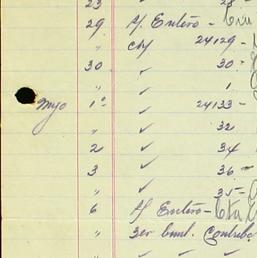 23 " 28 -
29 S/ Entero -
" ch/ 24129 -
30 ✓ 30 -
" ✓ 1
Myo 1º ✓ 24133 -
" ✓ 32
2 ✓ 34
3 ✓ 36 -
" ✓ 35 -
6 S/ Entero - Cta
" 3er biml. Contrib
" ✓ ✓ ✓